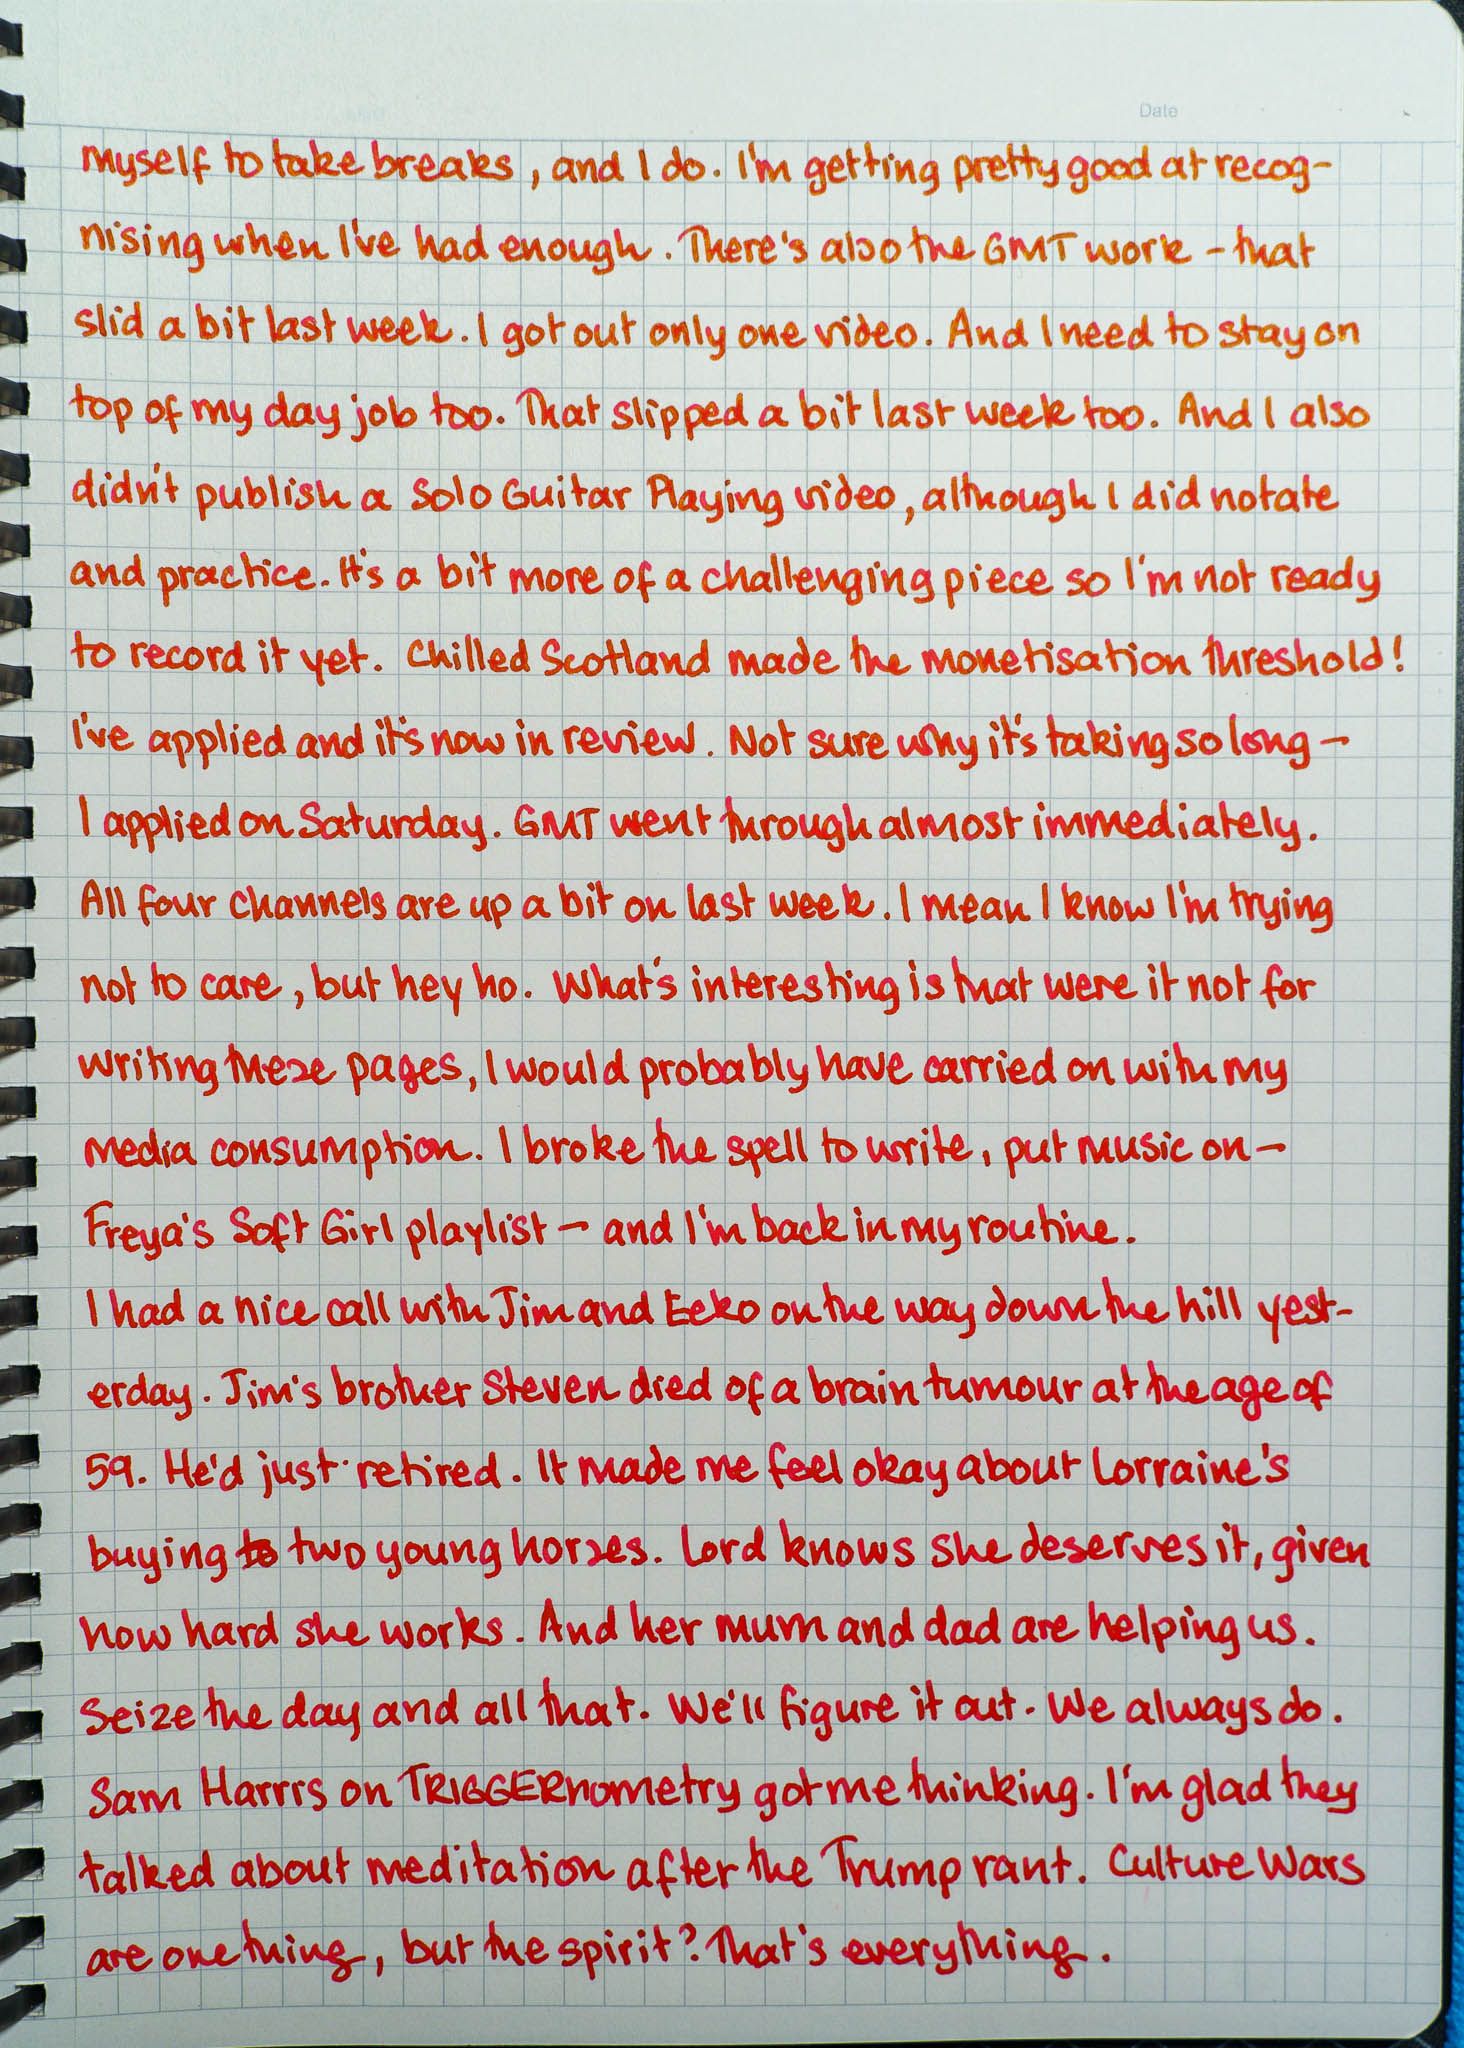 Date
myself to take breaks, and I do. I'm getting pretty good at recog-
nising when I've had enough. There's also the GMT work - that
slid a bit last week. I got out only one video. And I need to stay on
top of my day job too. That slipped a bit last week too. And I also
didn't publish a Solo Guitar Playing video, although I did notate
and practice. It's a bit more of a challenging piece so I'm not ready
to record it yet. Chilled Scotland made the monetisation threshold!
I've applied and it's now in review. Not sure why it's taking so long -
I applied on Saturday. GMT went through almost immediately.
All four channels are up a bit on last week. I mean I know I'm trying
not to care, but hey ho. What's interesting is that were it not for
writing these pages, I would probably have carried on with my
media consumption. I broke the spell to write, put music on -
Freya's Soft Girl playlist - and I'm back in my routine.
I had a nice call with Jim and Eeko on the way down the hill yest-
erday. Jim's brother Steven died of a brain tumour at the age of
59. He'd just retired. It made me feel okay about Lorraine's
buying to two young horses. Lord knows she deserves it, given
how hard she works. And her mum and dad are helping us.
Seize the day and all that. We'll figure it out. We always do.
Sam Harris on TRIGGERnometry got me thinking. I'm glad they
talked about meditation after the Trump rant. Culture Wars
are one thing, but the spirit? That's everything.